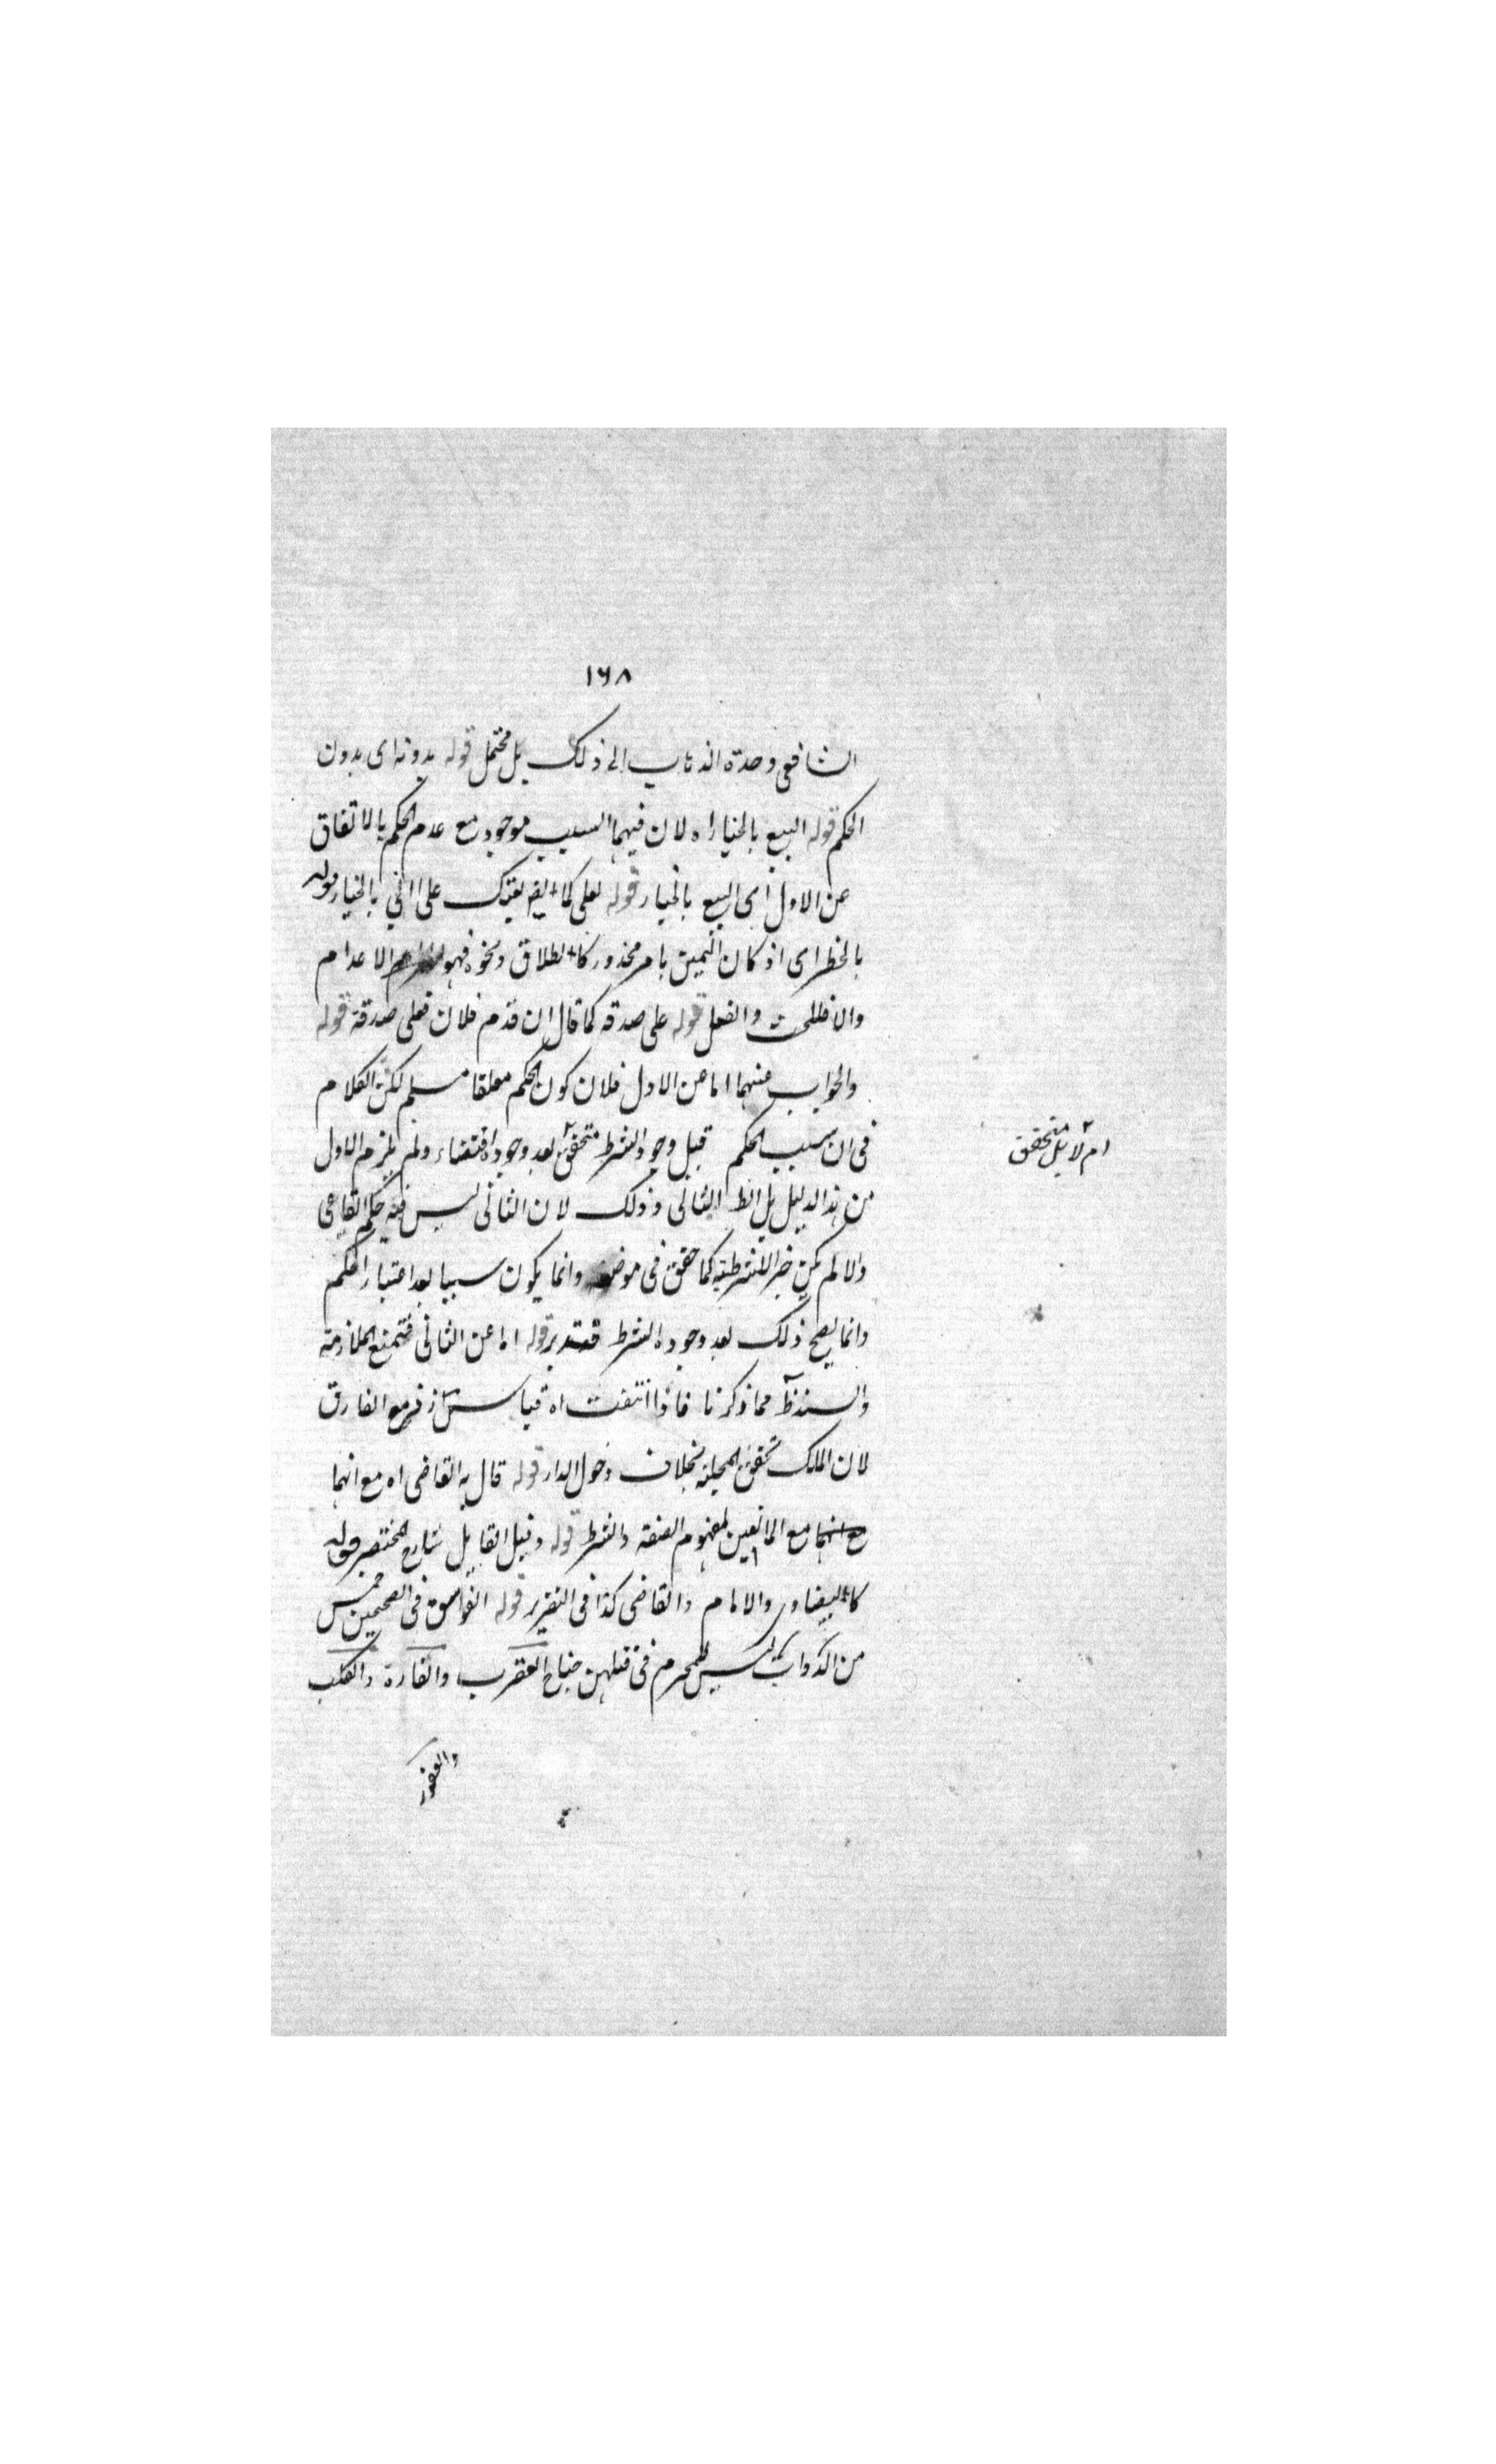 ١٦٨
الشافعي وحده الذهاب الى ذلك بل محتمل قوله بدونه اى بدون
الحكم قوله البيع بالخيار اه لان فيهما السبب موجود مع عدم الحكم بالاتفاق
عن الاول اى البيع بالخيار قوله لعلى كما يقم بعتك على انى بالخيار قوله
بالخطر اى اذ كان اليمين بامر محذور كالطلاق ونحوه فهو الاعدام
والا فللحث والفعل قوله على صدقه كما قال ان قدم فلان فعلى صدقة قوله
والجواب عنهما اما عن الاول فلان كون الحكم معلقا مسلم لكن الكلام
فى ان سبب الحكم قبل وجود الشرط متحقق بعد وجوده اقتضاء ولم يلزم الاول
ام لا بل متحقق
من هذا الدليل بل الظ الثانى وذلك لان الثانى ليس فيه حكم ايقاعى
والا لم يكن خبر الشرطية كما حقق فى موضعه وانما يكون سببا بعد اعتبار الحكم
وانما يصح ذلك بعد وجود الشرط فتدبر قوله اما عن الثانى فتمنع الملازمة
والسند ظ مما ذكرنا فاذا انتفت اه قياس زفر مع الفارق
لان الملك تحقق المحلية بخلاف دخول الدار قوله قال به القاضى اه مع انهما
مع انهما مع المانعين لمفهوم الصفة والشرط قوله وقيل القايل شارح المختصر قوله
كالبيضاوى والامام والقاضى كذا فى التقرير قوله الفواسق فى الصحيحين خمس
من الدواب ليس للمحرم فى قتلهن جناح العقرب والفارة والكلب
والعقور